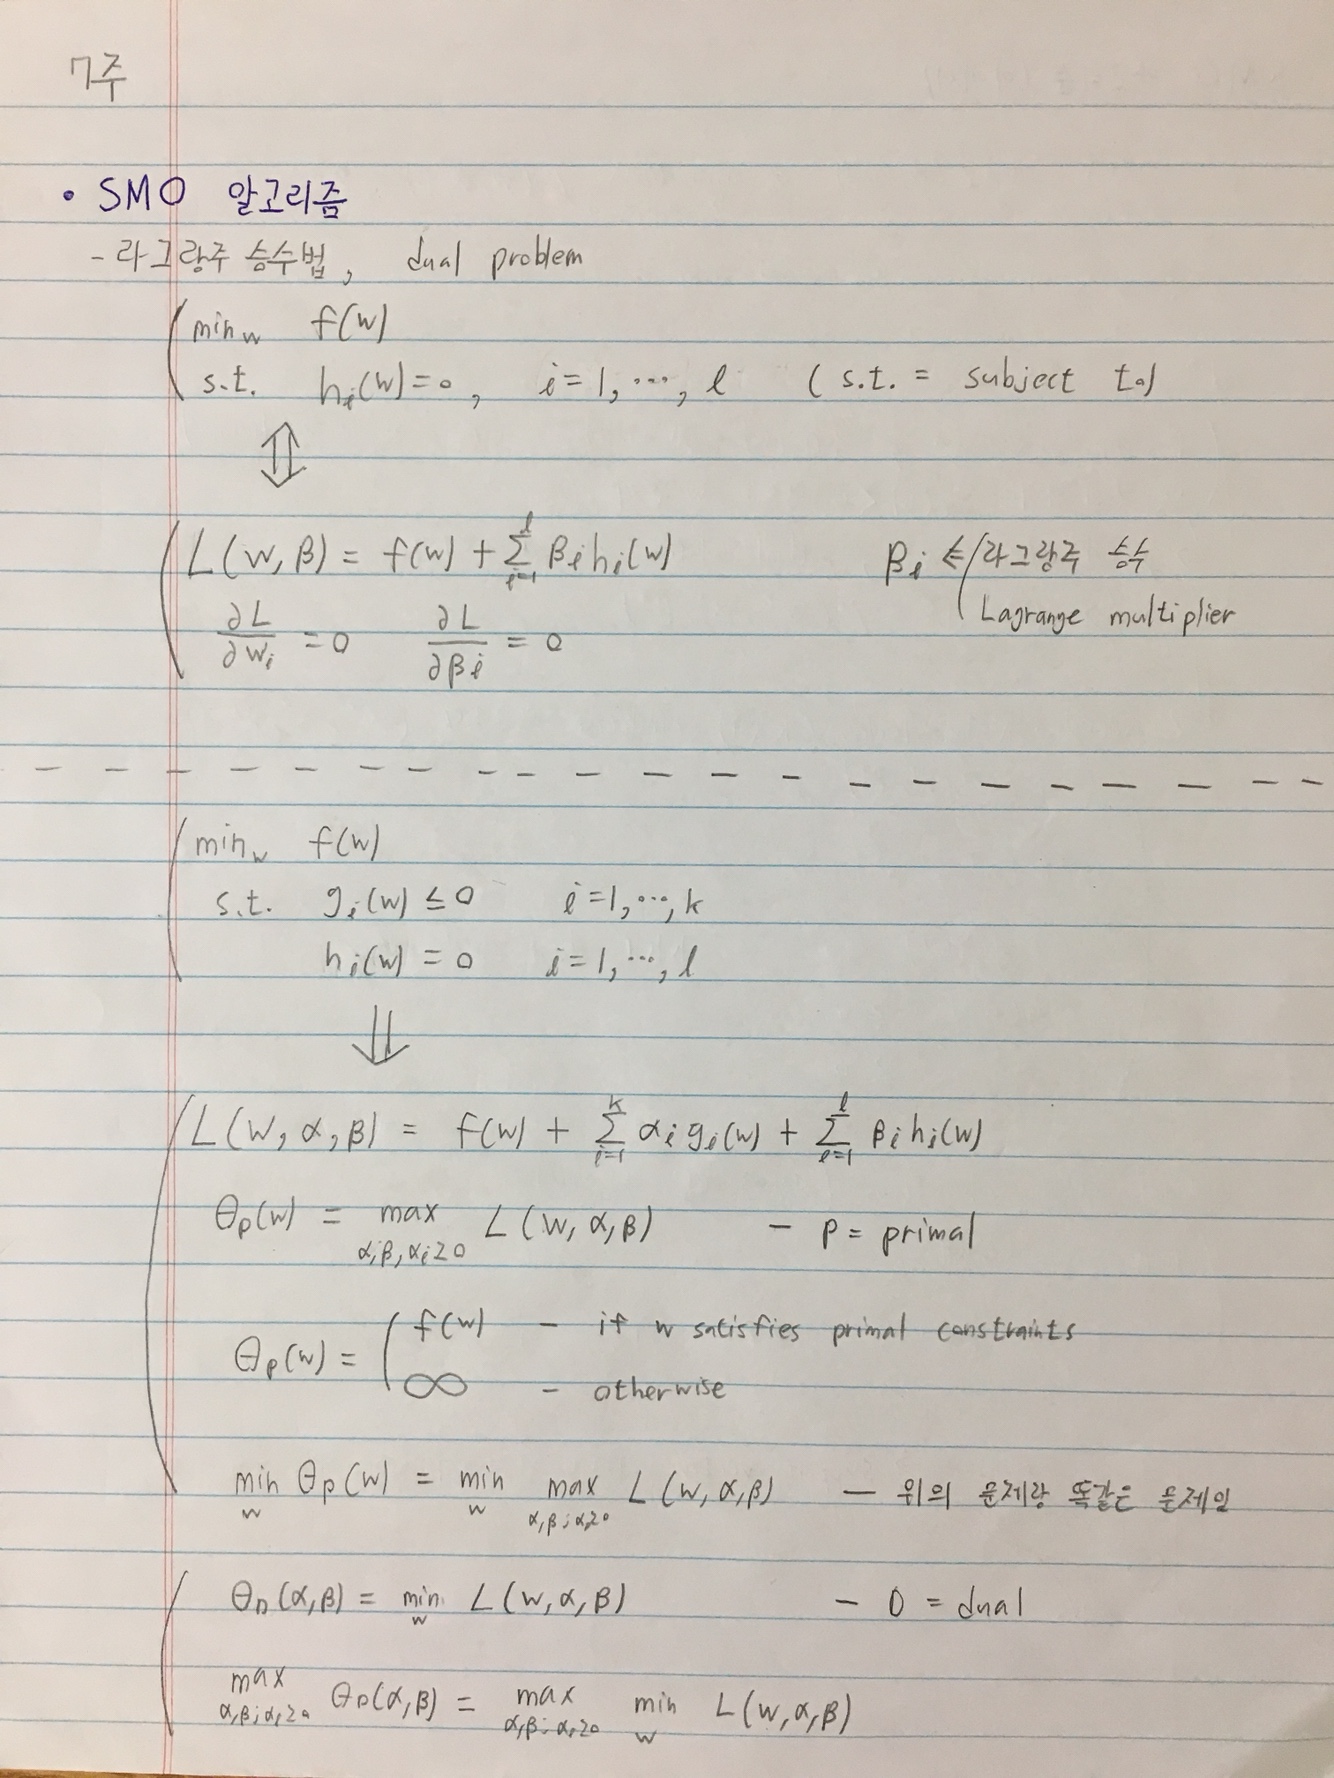 7주
• SMO 알고리즘
- 라그랑주 승수법, dual problem
min_w f(w)
s.t. h_i(w)=0, i=1,…,l (s.t. = subject to)
⇕
L(w,β) = f(w) + Σ_{i=1}^{l} β_i h_i(w) β_i ⇐ 라그랑주 승수
Lagrange multiplier
∂L/∂w_i = 0 ∂L/∂β_i = 0
min_w f(w)
s.t. g_i(w) ≤ 0 i=1,…,k
h_i(w) = 0 i=1,…,l
⇓
L(w,α,β) = f(w) + Σ_{i=1}^{k} α_i g_i(w) + Σ_{i=1}^{l} β_i h_i(w)
θ_p(w) = max_{α,β,α_i≥0} L(w,α,β) - p = primal
θ_p(w) = { f(w) - if w satisfies primal constraints
∞ - otherwise
min_w θ_p(w) = min_w max_{α,β;α_i≥0} L(w,α,β) - 위의 문제랑 똑같은 문제임
θ_D(α,β) = min_w L(w,α,β) - D = dual
max_{α,β;α_i≥0} θ_D(α,β) = max_{α,β;α_i≥0} min_w L(w,α,β)